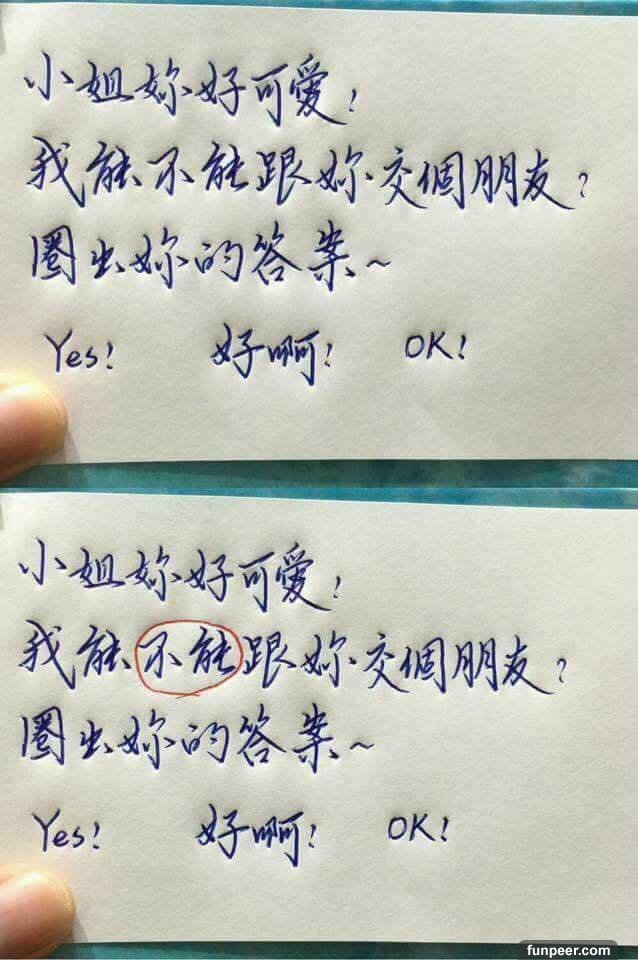 小姐妳好可愛!
我能不能跟妳交個朋友?
圈出妳的答案~
Yes! 好啊! OK!
小姐妳好可愛!
我能不能跟妳交個朋友?
圈出妳的答案~
Yes! 好啊! OK!
funpeer.com